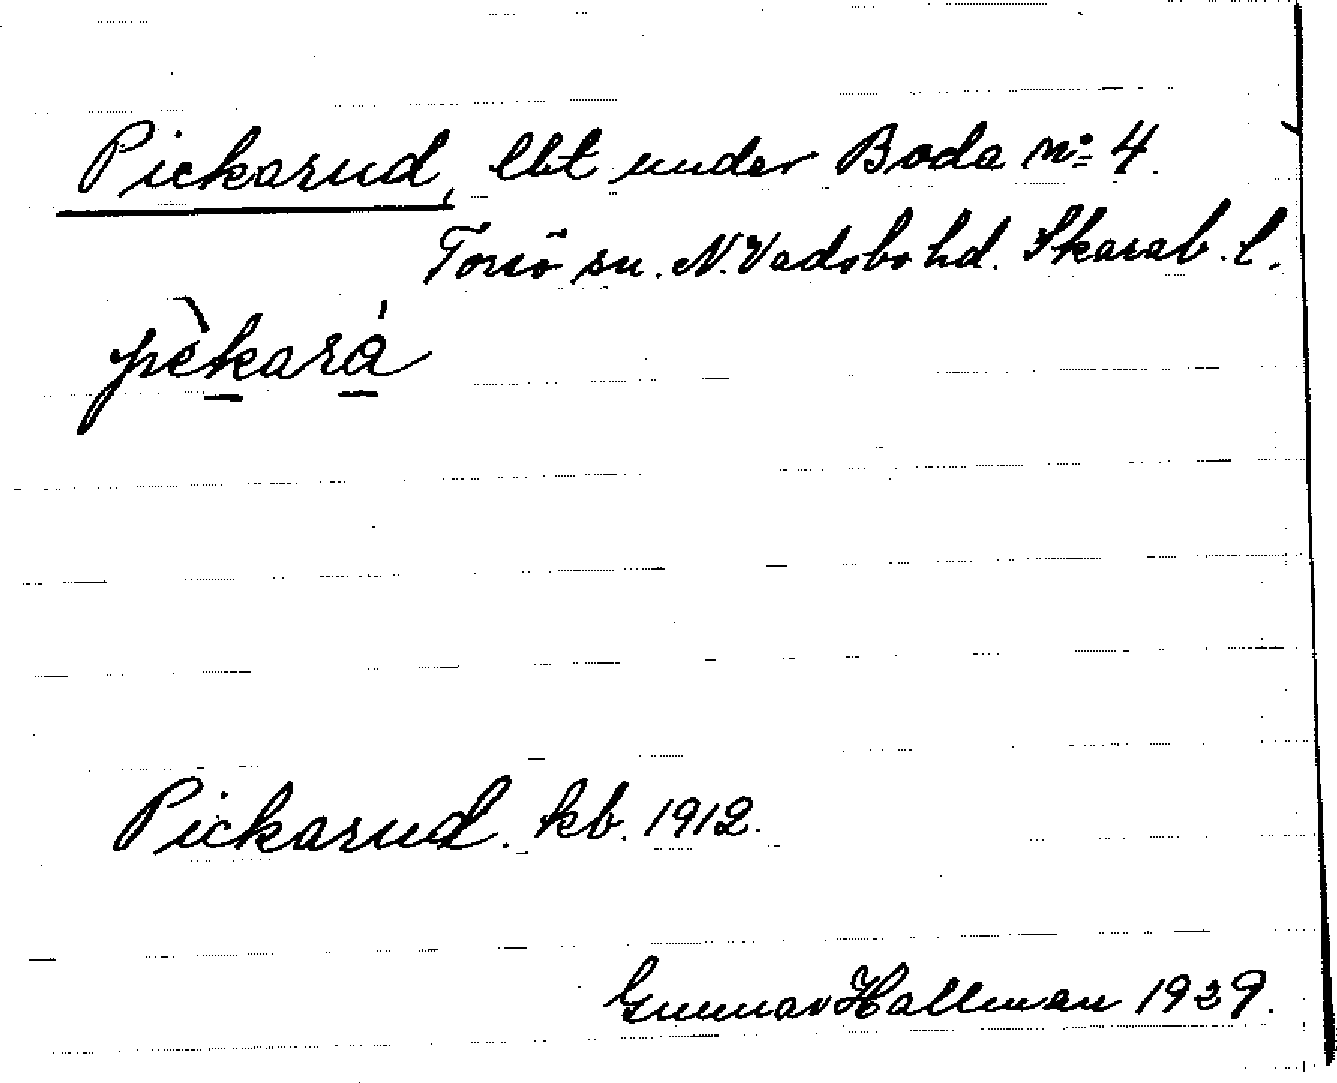 Pickarud, lbt under Boda nº 4.
Torsö sn. N. Vadsbo hd. Skarab. l.
pèkará
Pickarud. kb. 1912.
Gunnar Hallman 1929.